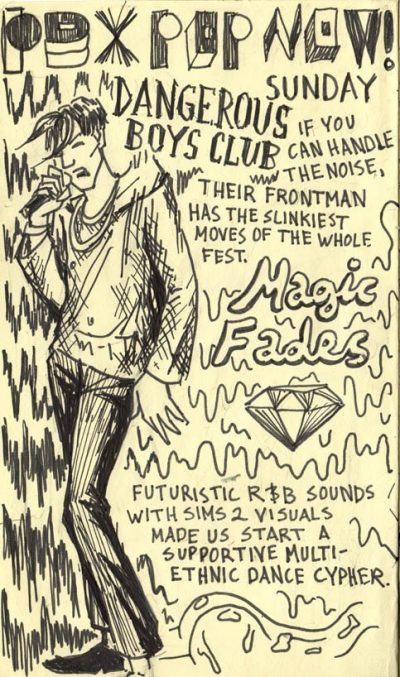 PDX POP NOW!
SUNDAY
DANGEROUS
BOYS CLUB
IF YOU
CAN HANDLE
THE NOISE,
THEIR FRONTMAN
HAS THE SLINKIEST
MOVES OF THE WHOLE
FEST.
Magic
Fades
FUTURISTIC R$B SOUNDS
WITH SIMS 2 VISUALS
MADE US START A
SUPPORTIVE MULTI-
ETHNIC DANCE CYPHER.